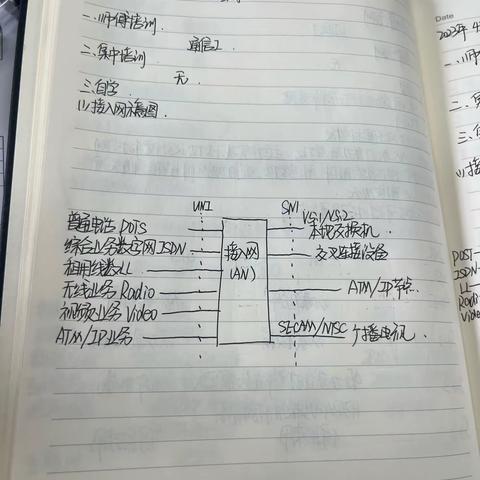 一、师傅培训
通信工
二、集中培训
无
三、自学
(1)接入网示意图.
UNI
SNI
V5.1/V5.2
普通电话 POTS
本地交换机.
综合业务数字网 ISDN
接入网
(AN)
交叉连接设备
租用线类 LL
无线业务 Radio
ATM/IP节点.
视频业务 Video
ATM/IP业务
SECAM/NTSC
广播电视.
Date
2022年 4
一、师
二、集
三、自
(1)接
POST
ISDN
LL
Radi
Video